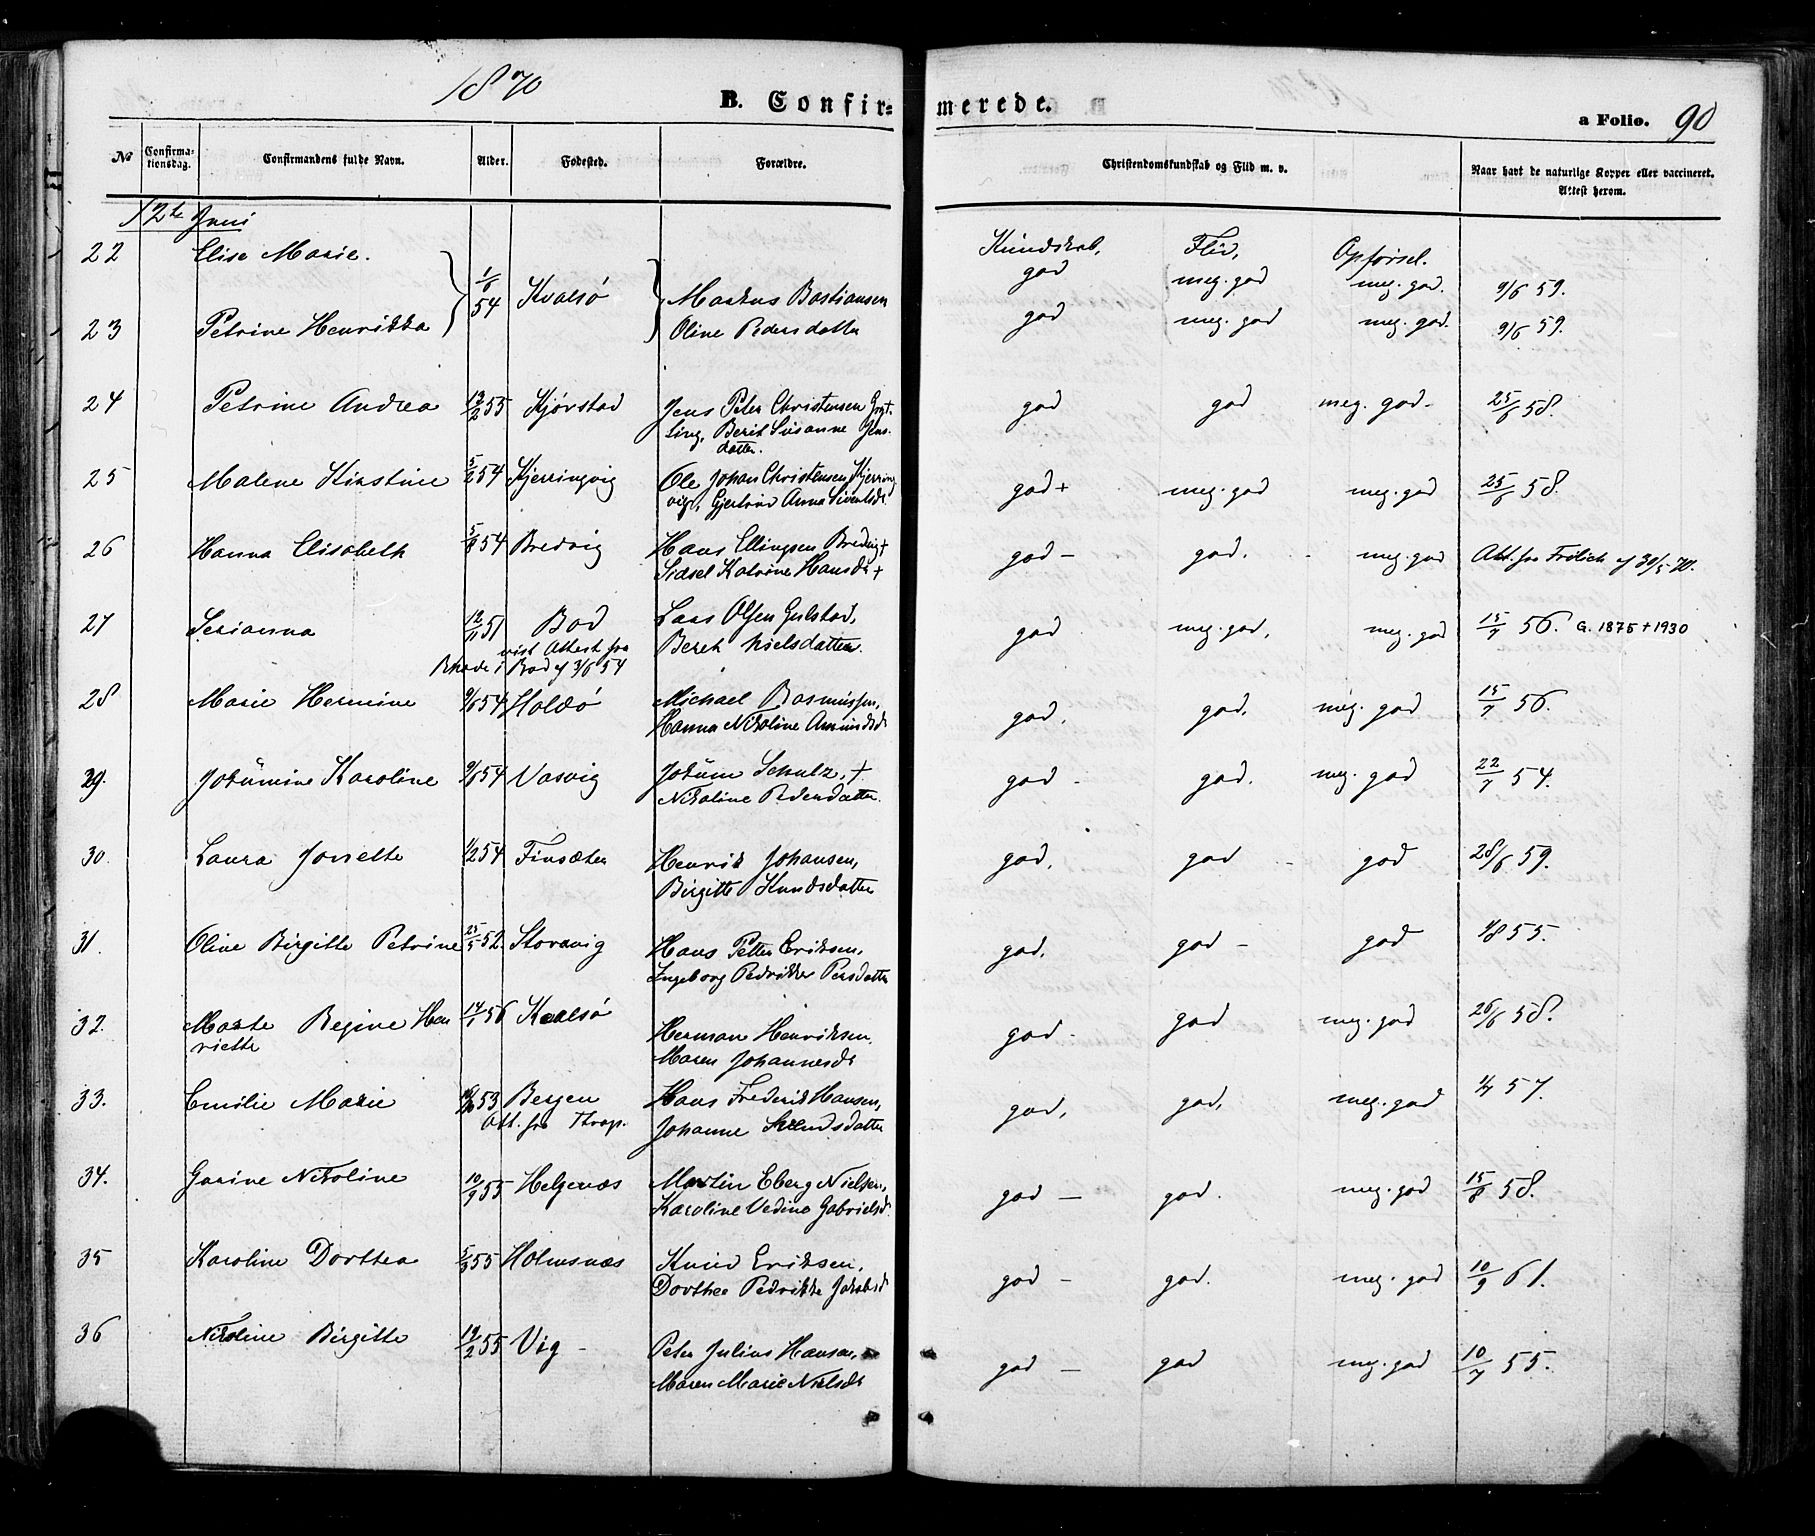 1870
B. Confirmerede.
a Folio. 90
No Confirmationsdag. Confirmandens fulde Navn. Alder. Fødested. Forældre. Christendomskundskab og Flid m. v. Naar havt de naturlige Kopper eller vaccineret. Attest herom.
12te Juni
Kundskab, Flid, Opførsel.
22 Elise Marie. 1/6 54 Kvalsø Markus Bastiansen god meg. god meg. god. 9/6 59.
23 Petrine Henrikka Oline Pedersdatter god meg. god meg. god. 9/6 59.
24 Petrine Andrea 13/2 55 Kjørstad Jens Peter Christensen god god meg. god- 25/6 58.
ling, Berit Susanne Jens-
datter.
25 Malene Kirstine 5/2 54 Kjerringvig Ole Johan Christensen Kjerring god+ meg. god meg. god 25/6 58.
vig, Gjertrud Anna Sivertsdr
26 Hanna Elisabeth 5/8 54 Bredvig Hans Ellingsen Bredvig+ god- god. meg. god Att. fra Frölich af 30/5 70.
Sidsel Katrine Hansdr+
27 Serianna 12/11 51 Bod Lars Olsen Gulstad, god meg. god, meg. god 15/7 56. G. 1875 + 1930
vist Attest fra Beret Nielsdatter.
Rhode i Bod af 3/6 54
28 Marie Hermine 9/6 54 Holdø Michael Rasmussen, god, god, meg. god 15/7 56.
Hanna Nikoline Amundsdr
29. Jokumine Karoline 9/6 54 Vasvig Jokum Schulz, + god - god. meg. god 22/7 54.
Nikoline Pedersdatter.
30. Laura Jonette 1/2 54 Finsæter Henrik Johansen, god, god - god 28/6 59.
Birgitte Knudsdatter
31. Oline Birgitte Petrine 25/5 52. Storavig Hans Petter Eriksen, god, god - god 1/8 55.
Ingeborg Pedrikke Persdatter
32. Marte Regine Hen 14/1 56 Kvalsø Herman Henriksen, god- god meg. god 26/6 58.
riette Maren Johannesdr
33. Emilie Marie 53 Bergen Hans Frederik Hansen, god, god, meg. god 1/7 57.
Att. fra Johanne Svendsdatter
34. Gurine Nikoline 10/9 55 Helgenæs Martin Eberg Nielsen, god - god. meg. god 15/8 58.
Karoline Vedina Gabrielsdr
35 Karoline Dorthea 5/3 55 Holmsnæs Knud Eriksen, god - god. meg. god 10/9 61.
Dorthea Pedrikke Jakobsd
36 Nikoline Birgitte 19/2 55 Vig - Peter Julius Hansen, god - god meg. god 10/7 55.
Maren Marie Nielsdr